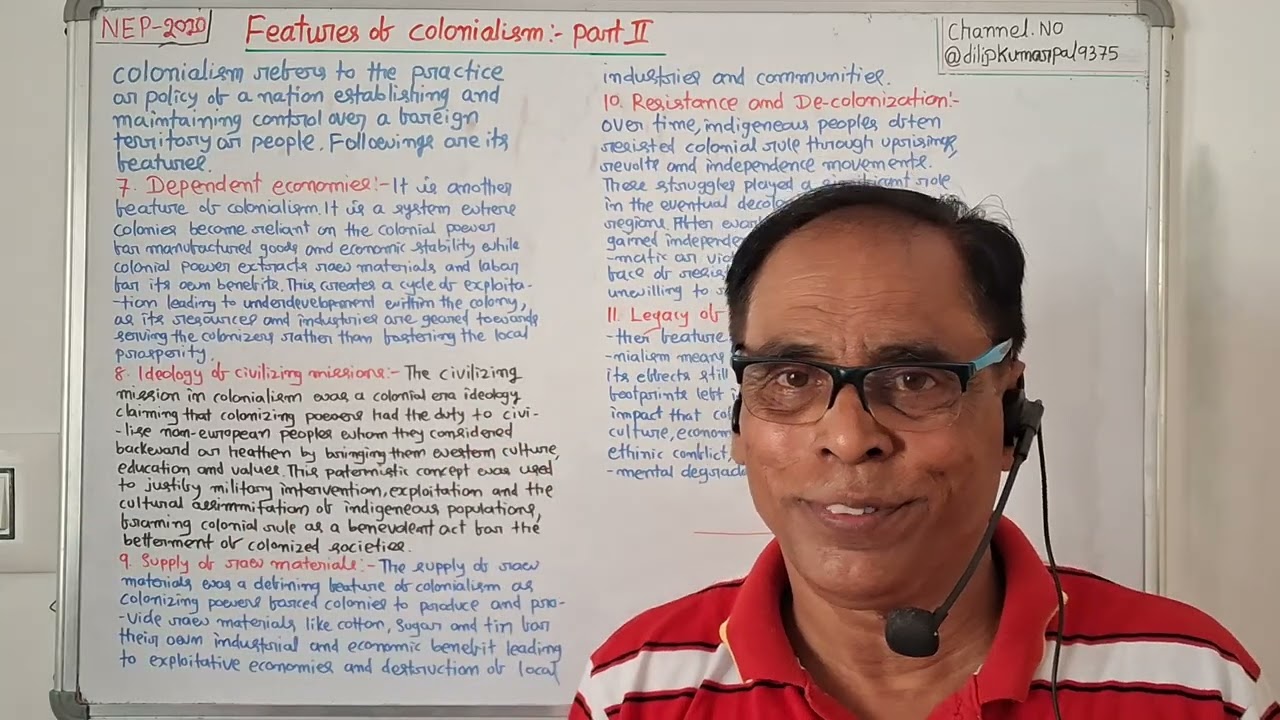 NEP-2020
Features of colonialism:- part II
Channel.NO
@dilipkumarpal9375
colonialism refers to the practice
or policy of a nation establishing and
maintaining control over a foreign
territory or people. Followings are its
features.
7. Dependent economies:- It is another
feature of colonialism. It is a system where
Colonies become reliant on the colonial power
for manufactured goods and economic stability while
colonial power extracts raw materials and labor
for its own benefits. This creates a cycle of exploita-
-tion leading to underdevelopment within the colony,
as its resources and industries are geared towards
serving the colonizers rather than fostering the local
prosperity.
8. Ideology of civilizing missions:- The civilizing
mission in colonialism was a colonial era ideology
claiming that colonizing powers had the duty to civi-
-lise non-european peoples whom they considered
backward or heathen by bringing them western culture,
education and values. This paternistic concept was used
to justify military intervention, exploitation and the
cultural assimmitation of indigeneous populations,
framing colonial rule as a benevolent act for the
betterment of colonized societies.
9. Supply of raw materials:- The supply of raw
materials was a defining feature of colonialism as
colonizing powers forced colonies to produce and pro-
-vide raw materials like cotton, sugar and tin for
their own industrial and economic benefit leading
to exploitative economies and destruction of local
industries and communities.
10. Resistance and De-colonization:-
over time, indigeneous peoples often
resisted colonial rule through uprisings,
revolts and independence movements.
These struggles played a significant role
in the eventual
regions. After
gained
-matic or
face of
unwilling to
11. Legacy of
-ther feature
-nialism means
its effects still
footprints left
impact that
culture,
ethinic conflict,
-mental